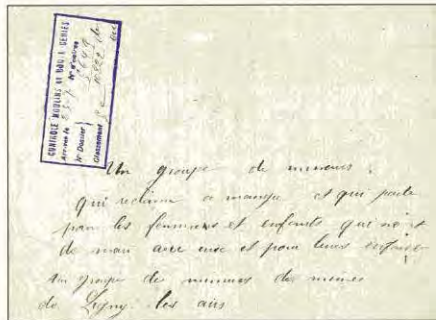 CONTRÔLE MOULINS DE BOU A DENIES
Arrivée le N° d'entrée
N° Dossier
Classement
Un groupe de mineurs,
qui reclame a manger et qui parle
pour les femmes et enfants qui nont
de mari avec eux et pour leurs enfants
Un groupe des mineurs des mines
de Ligny-les-aire